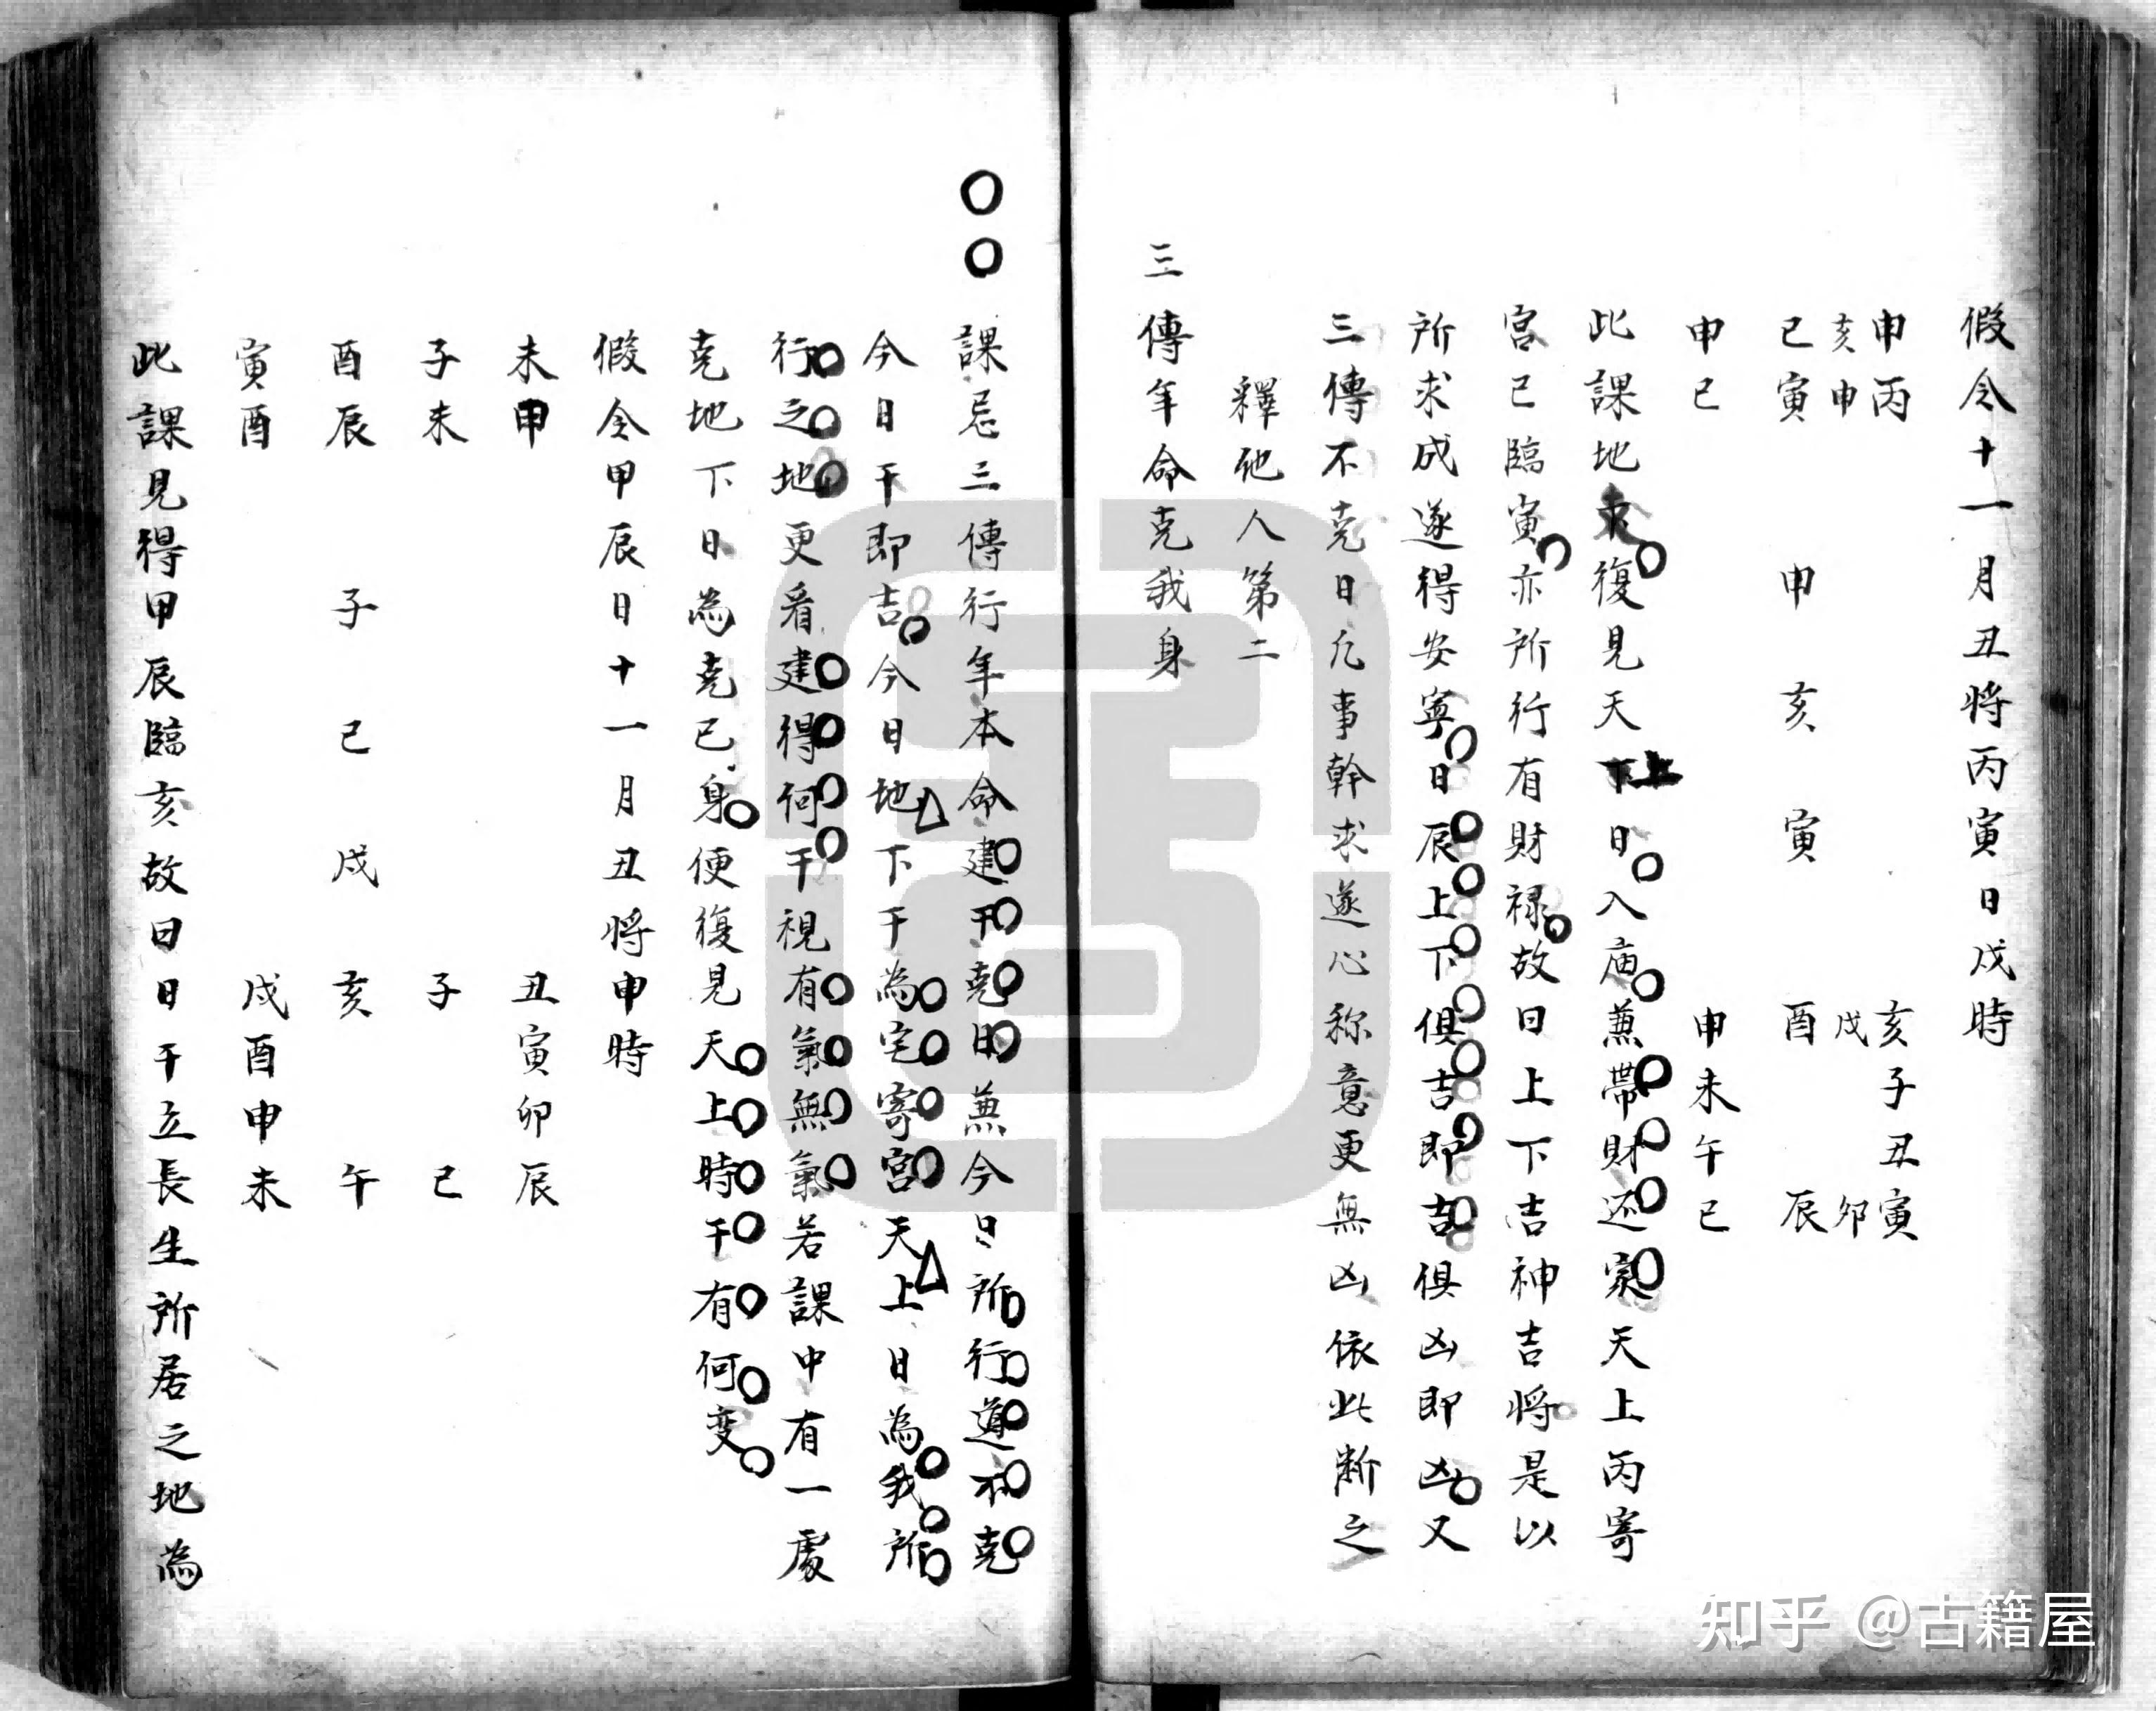 假令十一月丑將丙寅日戌時
申丙 亥子丑寅
亥申 戌 卯
已寅 申 亥 寅 酉 辰
申已 申未午已
此課地支復見天上日入庙兼帶財还家天上丙寄
宮已臨寅亦所行有財禄故日上下吉神吉將是以
所求成遂得安寧日辰上下俱吉即吉俱凶即凶又
三傳不克日凡事幹求遂心称意更無凶依此断之
釋他人第二
三傳年命克我身
〇〇課忌三傳行年本命建干克日兼今日所行道不克
今日干即吉今日地下干為宅寄宮天上日為我所
行之地更看建得何干視有氣無氣若課中有一處
克地下日為克已身便復見天上時干有何变
假令甲辰日十一月丑將申時
未申 丑寅卯辰
子未 子 已
酉辰 子 已 戌 亥 午
寅酉 戌酉申未
此課見得甲辰臨亥故曰日干立長生所居之地為
知乎 @古籍屋